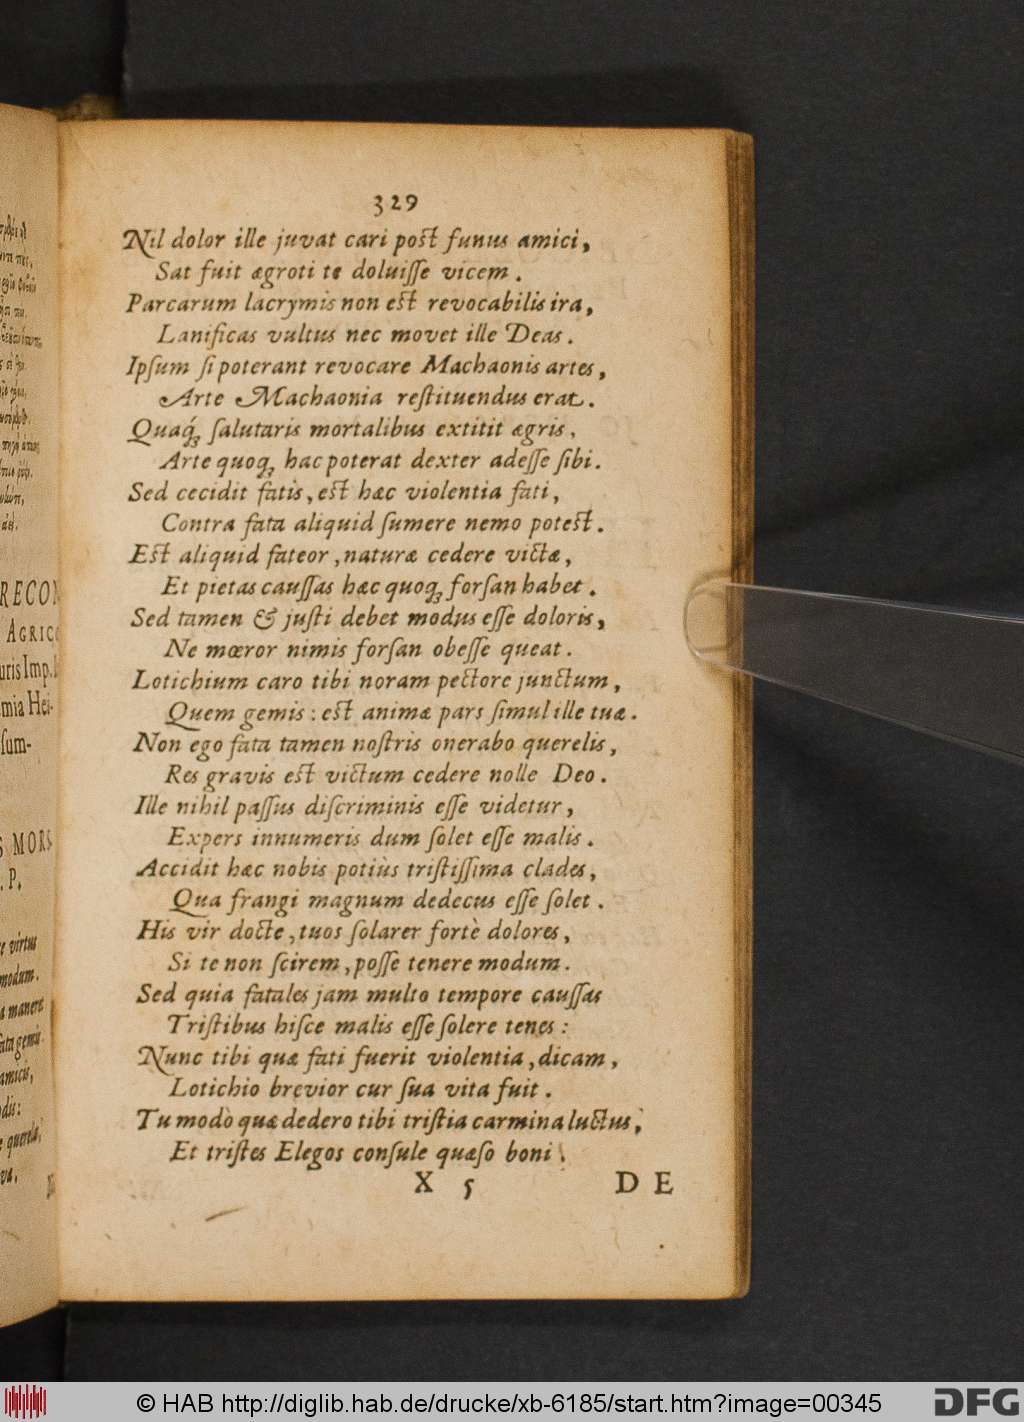 329
Nil dolor ille juvat cari post funus amici,
Sat fuit ægroti te doluiſſe vicem.
Parcarum lacrymis non est revocabilis ira,
Lanificas vultus nec movet ille Deas.
Ipſum ſi poterant revocare Machaonis artes,
Arte Machaonia reſtituendus erat.
Quaq́ꝫ ſalutaris mortalibus extitit ægris,
Arte quoqꝫ hac poterat dexter adeſſe ſibi.
Sed cecidit fatis, est hæc violentia fati,
Contra fata aliquid ſumere nemo potest.
Est aliquid fateor, naturæ cedere victæ,
Et pietas cauſſas hæc quoqꝫ forſan habet.
Sed tamen & juſti debet modus eſſe doloris,
Ne mœror nimis forſan obeſſe queat.
Lotichium caro tibi noram pectore junctum,
Quem gemis: est animæ pars ſimul ille tuæ.
Non ego fata tamen noſtris onerabo querelis,
Res gravis est victum cedere nolle Deo.
Ille nihil paſſus diſcriminis eſſe videtur,
Expers innumeris dum ſolet eſſe malis.
Accidit hæc nobis potiùs triſtiſſima clades,
Qua frangi magnum dedecus eſſe ſolet.
His vir docte, tuos ſolarer fortè dolores,
Si te non ſcirem, poſſe tenere modum.
Sed quia fatales jam multo tempore cauſſas
Triſtibus hiſce malis eſſe ſolere tenes:
Nunc tibi quæ fati fuerit violentia, dicam,
Lotichio brevior cur ſua vita fuit.
Tu modò quæ dedero tibi triſtia carmina luctus,
Et triſtes Elegos conſule quæſo boni.
X 5 DE
RECON
AGRICO
uris Imp.
mia Hei-
ſum-
S MORS
. P.
e virtus
modum.
a manere
fata gemis
amicis,
odis:
e querelæ,
va.
© HAB http://diglib.hab.de/drucke/xb-6185/start.htm?image=00345
DFG